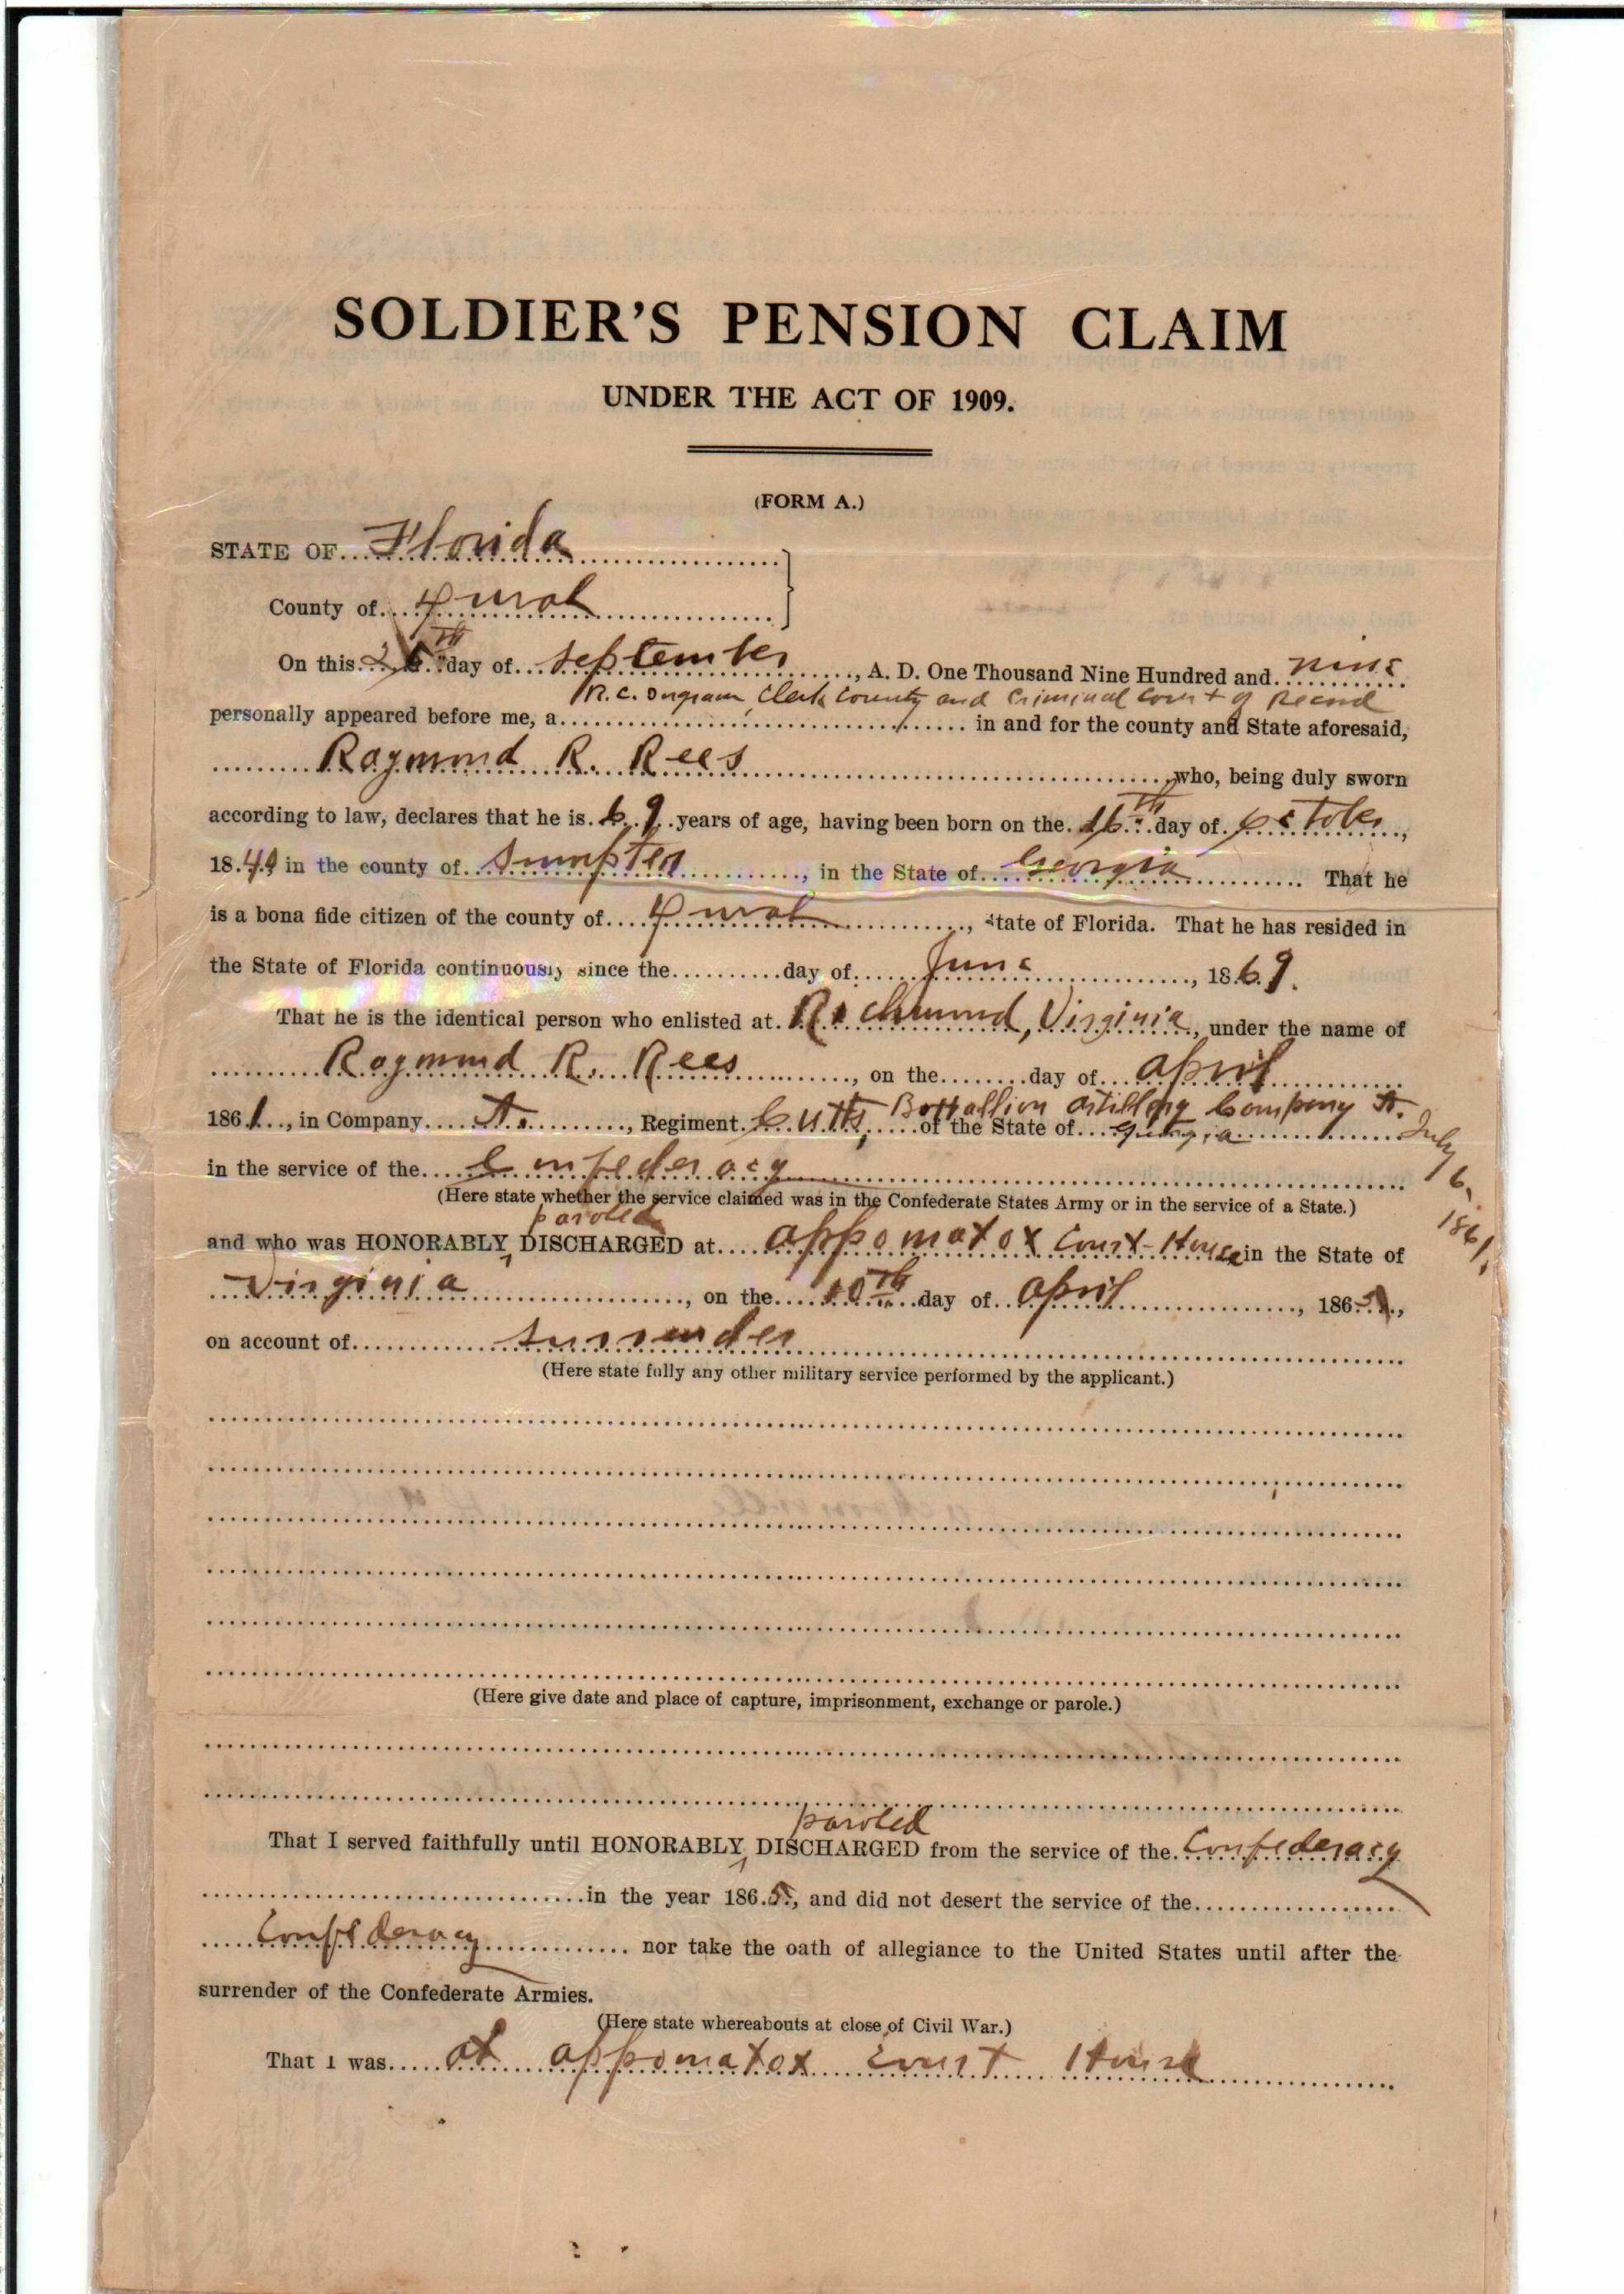 SOLDIER'S PENSION CLAIM
UNDER THE ACT OF 1909.
(FORM A.)
STATE OF Florida
County of Duval
On this day of September, A. D. One Thousand Nine Hundred and nine
R. C. Ingram, Clerk County and Criminal Court of Record
personally appeared before me, a in and for the county and State aforesaid,
Raymond R. Rees who, being duly sworn
according to law, declares that he is 69 years of age, having been born on the 16th day of October,
18 in the county of Sumpter, in the State of Georgia. That he
is a bona fide citizen of the county of Duval, State of Florida. That he has resided in
the State of Florida continuously since the day of June, 1869.
That he is the identical person who enlisted at Richmond, Virginia, under the name of
Raymond R. Rees, on the day of April
1861, in Company A., Regiment Cutts, Battallion Artillery Company A. of the State of Georgia July 16, 1861.
in the service of the Confederacy
(Here state whether the service claimed was in the Confederate States Army or in the service of a State.)
paroled
and who was HONORABLY DISCHARGED at Appomatox Court-House in the State of
Virginia, on the 10th day of April, 1865,
on account of surrender
(Here state fully any other military service performed by the applicant.)
(Here give date and place of capture, imprisonment, exchange or parole.)
paroled
That I served faithfully until HONORABLY DISCHARGED from the service of the Confederacy
in the year 1865, and did not desert the service of the
Confederacy nor take the oath of allegiance to the United States until after the
surrender of the Confederate Armies.
(Here state whereabouts at close of Civil War.)
That I was at Appomatox Court House